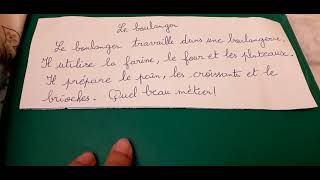 Le boulanger
Le boulanger travaille dans une boulangerie.
Il utilise la farine, le four et les plateaux.
Il prépare le pain, les croissants et le
brioches. Quel beau métier!